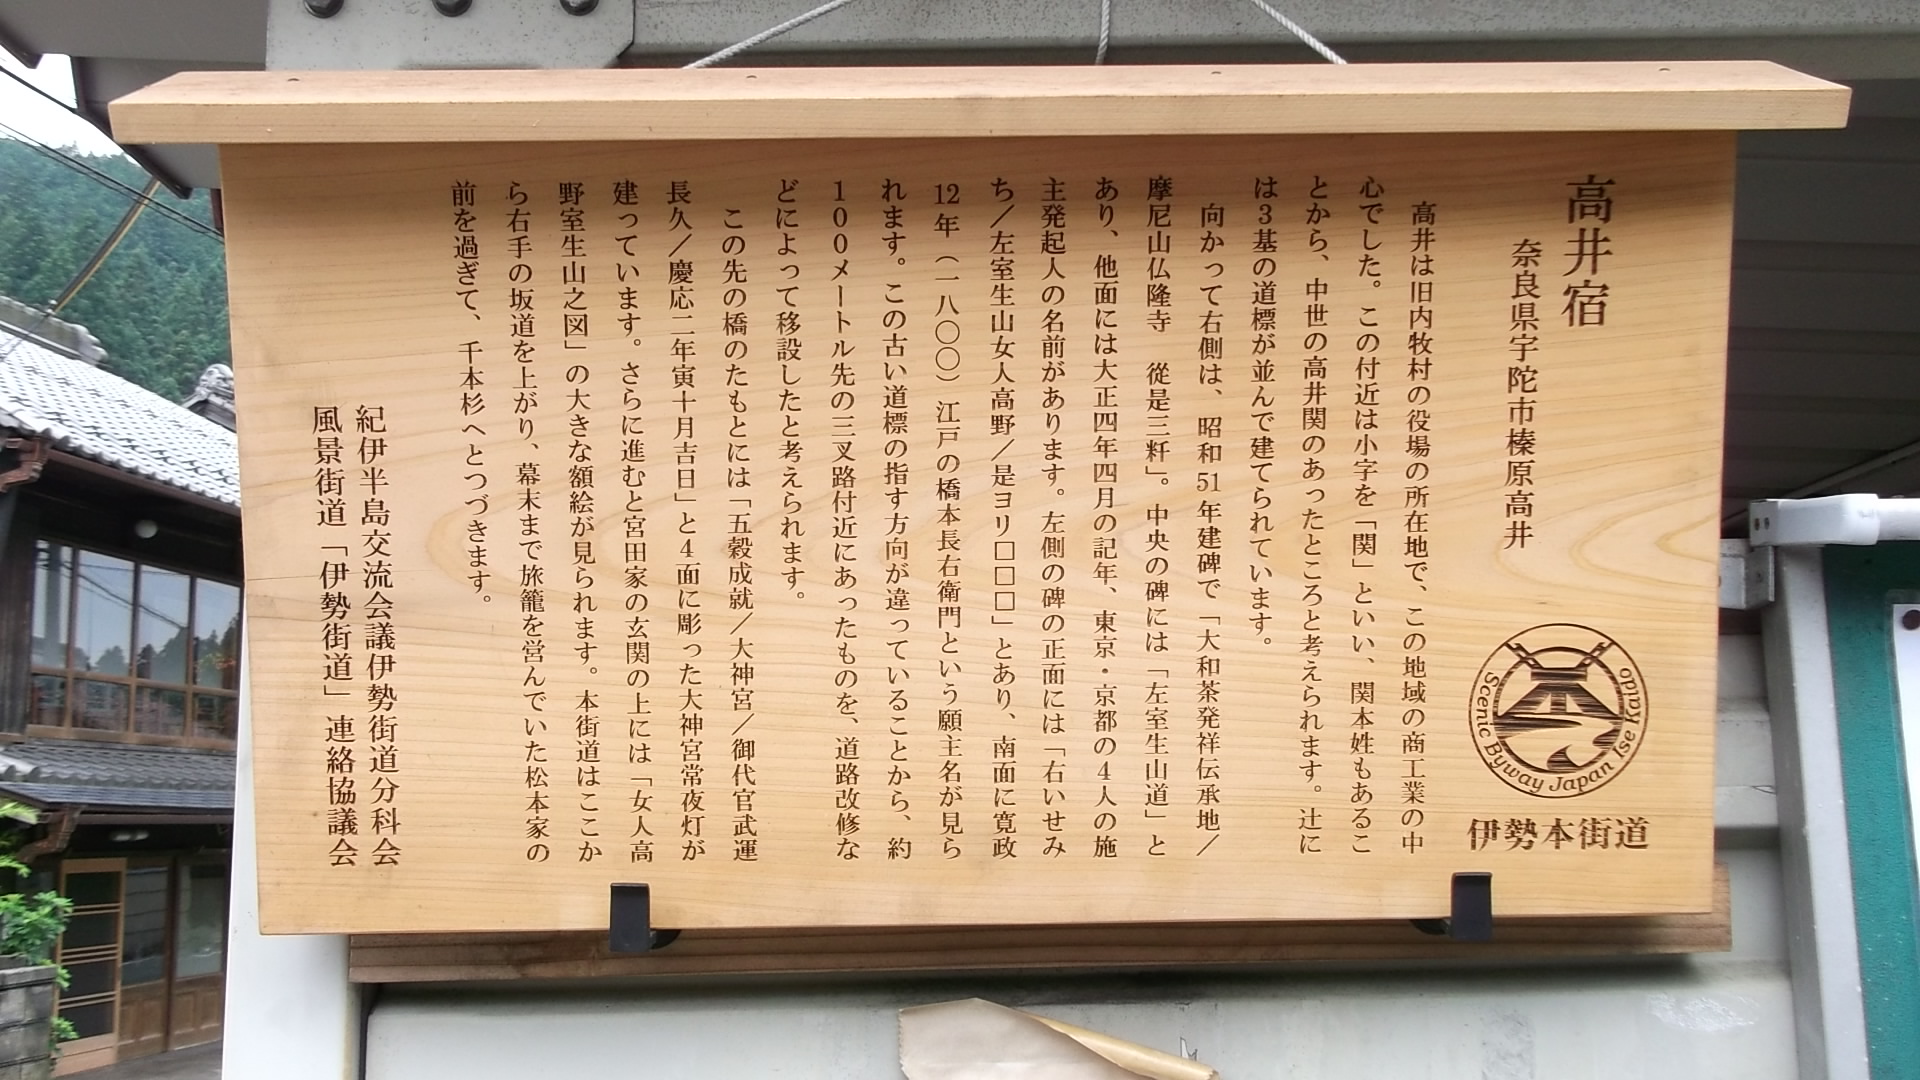 高井宿
奈良県宇陀市榛原高井
Scenic Byway Japan Ise Kaido
伊勢本街道
高井は旧内牧村の役場の所在地で、この地域の商工業の中
心でした。この付近は小字を「関」といい、関本姓もあるこ
とから、中世の高井関のあったところと考えられます。辻に
は3基の道標が並んで建てられています。
向かって右側は、昭和51年建碑で「大和茶発祥伝承地/
摩尼山仏隆寺 從是三粁」。中央の碑には「左室生山道」と
あり、他面には大正四年四月の記年、東京・京都の4人の施
主発起人の名前があります。左側の碑の正面には「右いせみ
ち/左室生山女人高野/是ヨリ□□□」とあり、南面に寛政
12年(一八〇〇)江戸の橋本長右衛門という願主名が見ら
れます。この古い道標の指す方向が違っていることから、約
100メートル先の三叉路付近にあったものを、道路改修な
どによって移設したと考えられます。
この先の橋のたもとには「五穀成就/大神宮/御代官武運
長久/慶応二年寅十月吉日」と4面に彫った大神宮常夜灯が
建っています。さらに進むと宮田家の玄関の上には「女人高
野室生山之図」の大きな額絵が見られます。本街道はここか
ら右手の坂道を上がり、幕末まで旅籠を営んでいた松本家の
前を過ぎて、千本杉へとつづきます。
紀伊半島交流会議伊勢街道分科会
風景街道「伊勢街道」連絡協議会